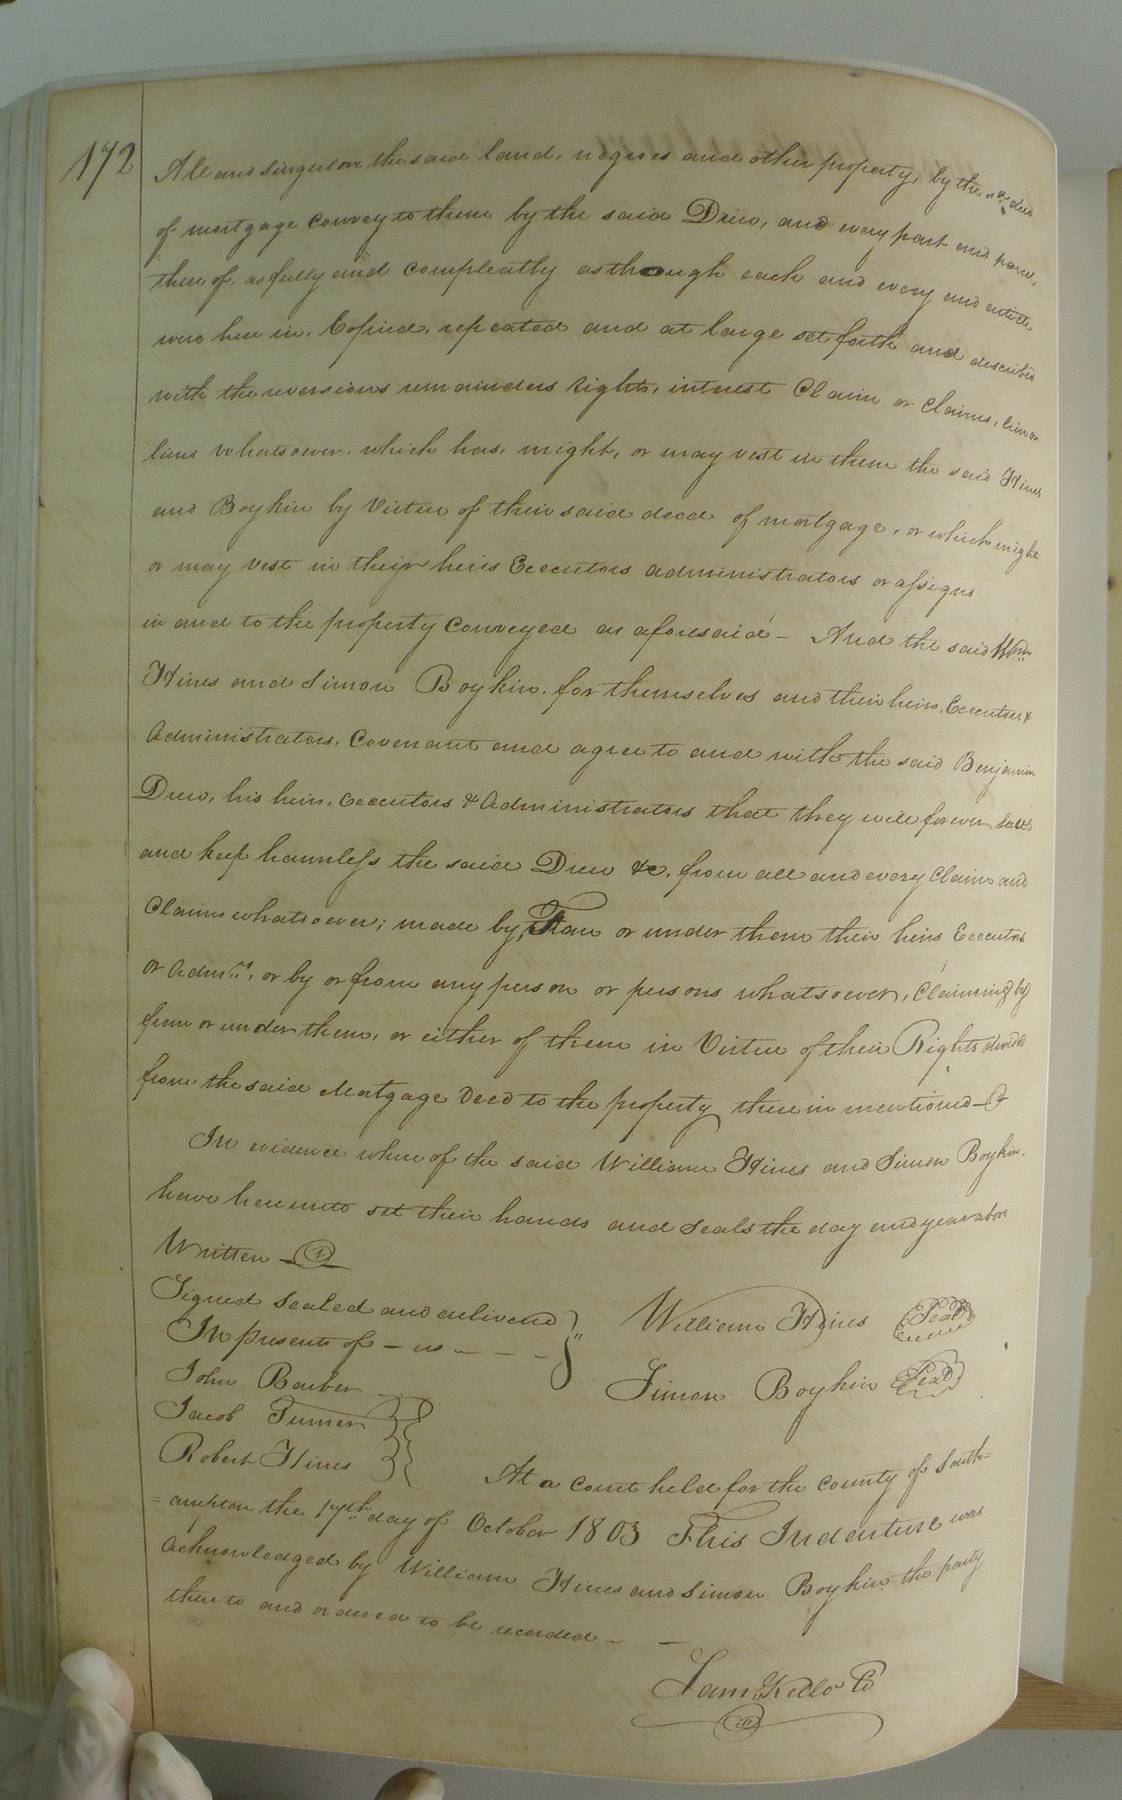 172
All and Singular the said land, negroes and other property, by the sd. deed
of mortgage convey to them by the said Drew, and every part and parcel,
there of, as fully and compleatly as though each and every and article
were here in, Copied, repeated and at large set forth and described
with the reversions remainders Rights, interest Claim or Claims, lien or
liens whatsoever, which has, might, or may vest in them the said Hines
and Boykin by Virtue of their said deed of mortgage, or which might
or may vest in their heirs Executors administrators or assigns
in and to the property Conveyed as aforesaid – And the said Wm.
Hines and Simon Boykin, for themselves and their heirs, Executors &
Administrators, Covenant and agree to and with the said Benjamin
Drew, his heirs, Executors & Administrators that they will forever save
and keep harmless the said Drew &c, from all and every Claim and
Claims whatsoever; made by, From or under them their heirs Executors
or Admrs., or by or from any person or persons whatsoever, Claiming by
from or under them, or either of them in Virtue of their Rights derived
from the said Mortgage Deed to the property there in mentioned –
In evidence where of the said William Hines and Simon Boykin,
have hereunto set their hands and Seals the day and year above
Written –
Signed Sealed and delivered William Hines Seal
In presents of – us – – –
John Barber Simon Boykin Seal
Jacob Turner
Robert Hines
At a Court held for the County of South=
=ampton the 17th day of October 1803 This Indenture was
Acknowledged by William Hines and Simon Boykin the party
there to and ordered to be recorded – –
Sam Kello C